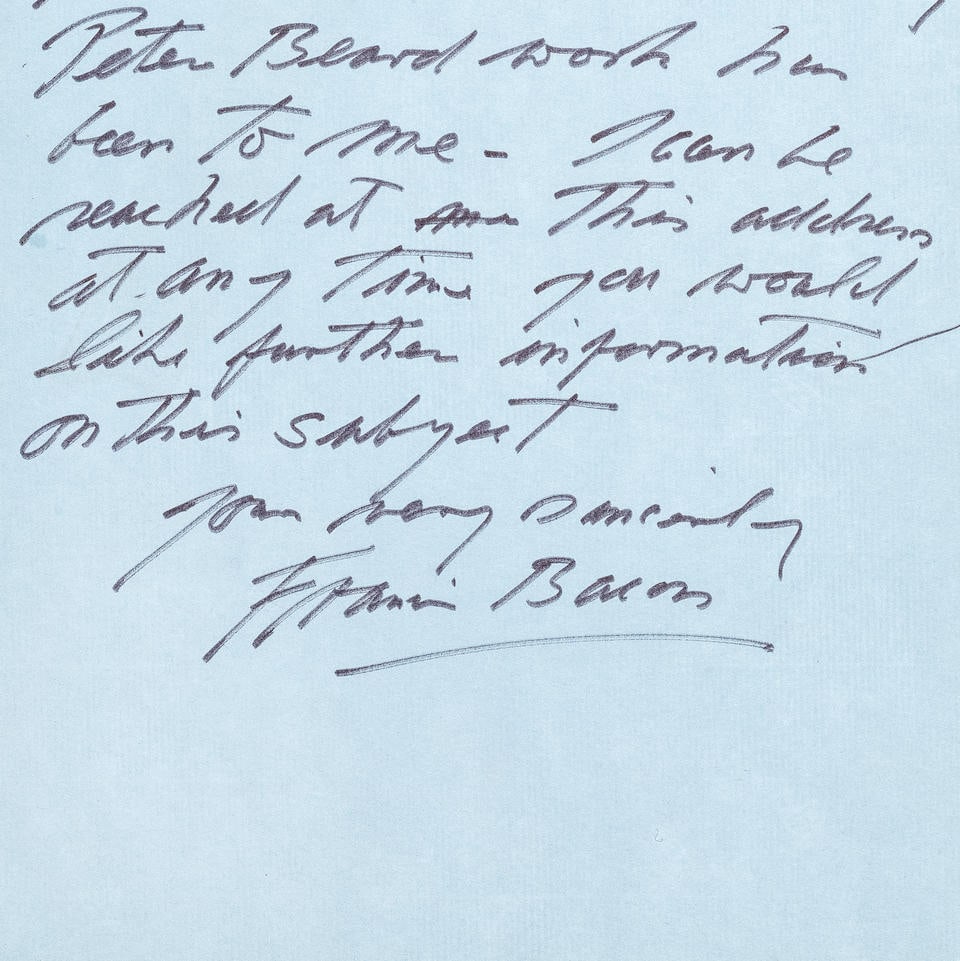 Peter Beard work has
been to me - I can be
reached at this address
at any time you would
like further information
on this subject
Yours very sincerely
Francis Bacon